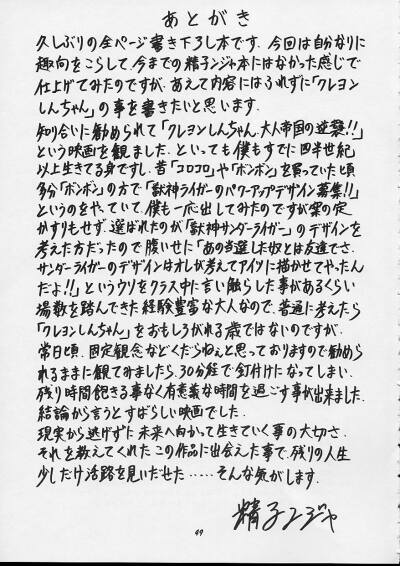 あとがき
久しぶりの全ページ書き下ろし本です。今回は自分なりに
趣向をこらして、今までの精子ンジャ本にはなかった感じで
仕上げてみたのですが、あえて内容にはふれずに「クレヨン
しんちゃん」の事を書きたいと思います。
知り合いに勧められて「クレヨンしんちゃん、大人帝国の逆襲!!」
という映画を観ました。といっても僕もすでに四半世紀
以上生きてる身ですし、昔「コロコロ」や「ボンボン」を買っていた頃
多分「ボンボン」の方で「獣神ライガーのパワーアップデザイン募集!!」
というのをやっていて、僕も一応出してみたのですが案の定
かすりもせず、選ばれたのが「獣神サンダーライガー」のデザインを
考えた方だったので腹いせに「あの当選した奴とは友達でさ、
サンダーライガーのデザインはオレが考えてアイツに描かせてやったん
だよ!!」というウソをクラス中に言い触らした事があるくらい
場数を踏んできた経験豊富な大人なので、普通に考えたら
「クレヨンしんちゃん」をおもしろがれる歳ではないのですが、
常日頃、固定観念などくだらねぇと思っておりますので勧めら
れるままに観てみましたら、30分経で釘付けになってしまい、
残り時間飽きる事なく有意義な時間を過ごす事が出来ました。
結論から言うとすばらしい映画でした。
現実から逃げずに未来へ向かって生きていく事の大切さ、
それを教えてくれたこの作品に出会えた事で、残りの人生
少しだけ活路を見いだせた……そんな気がします。
精子ンジャ
49